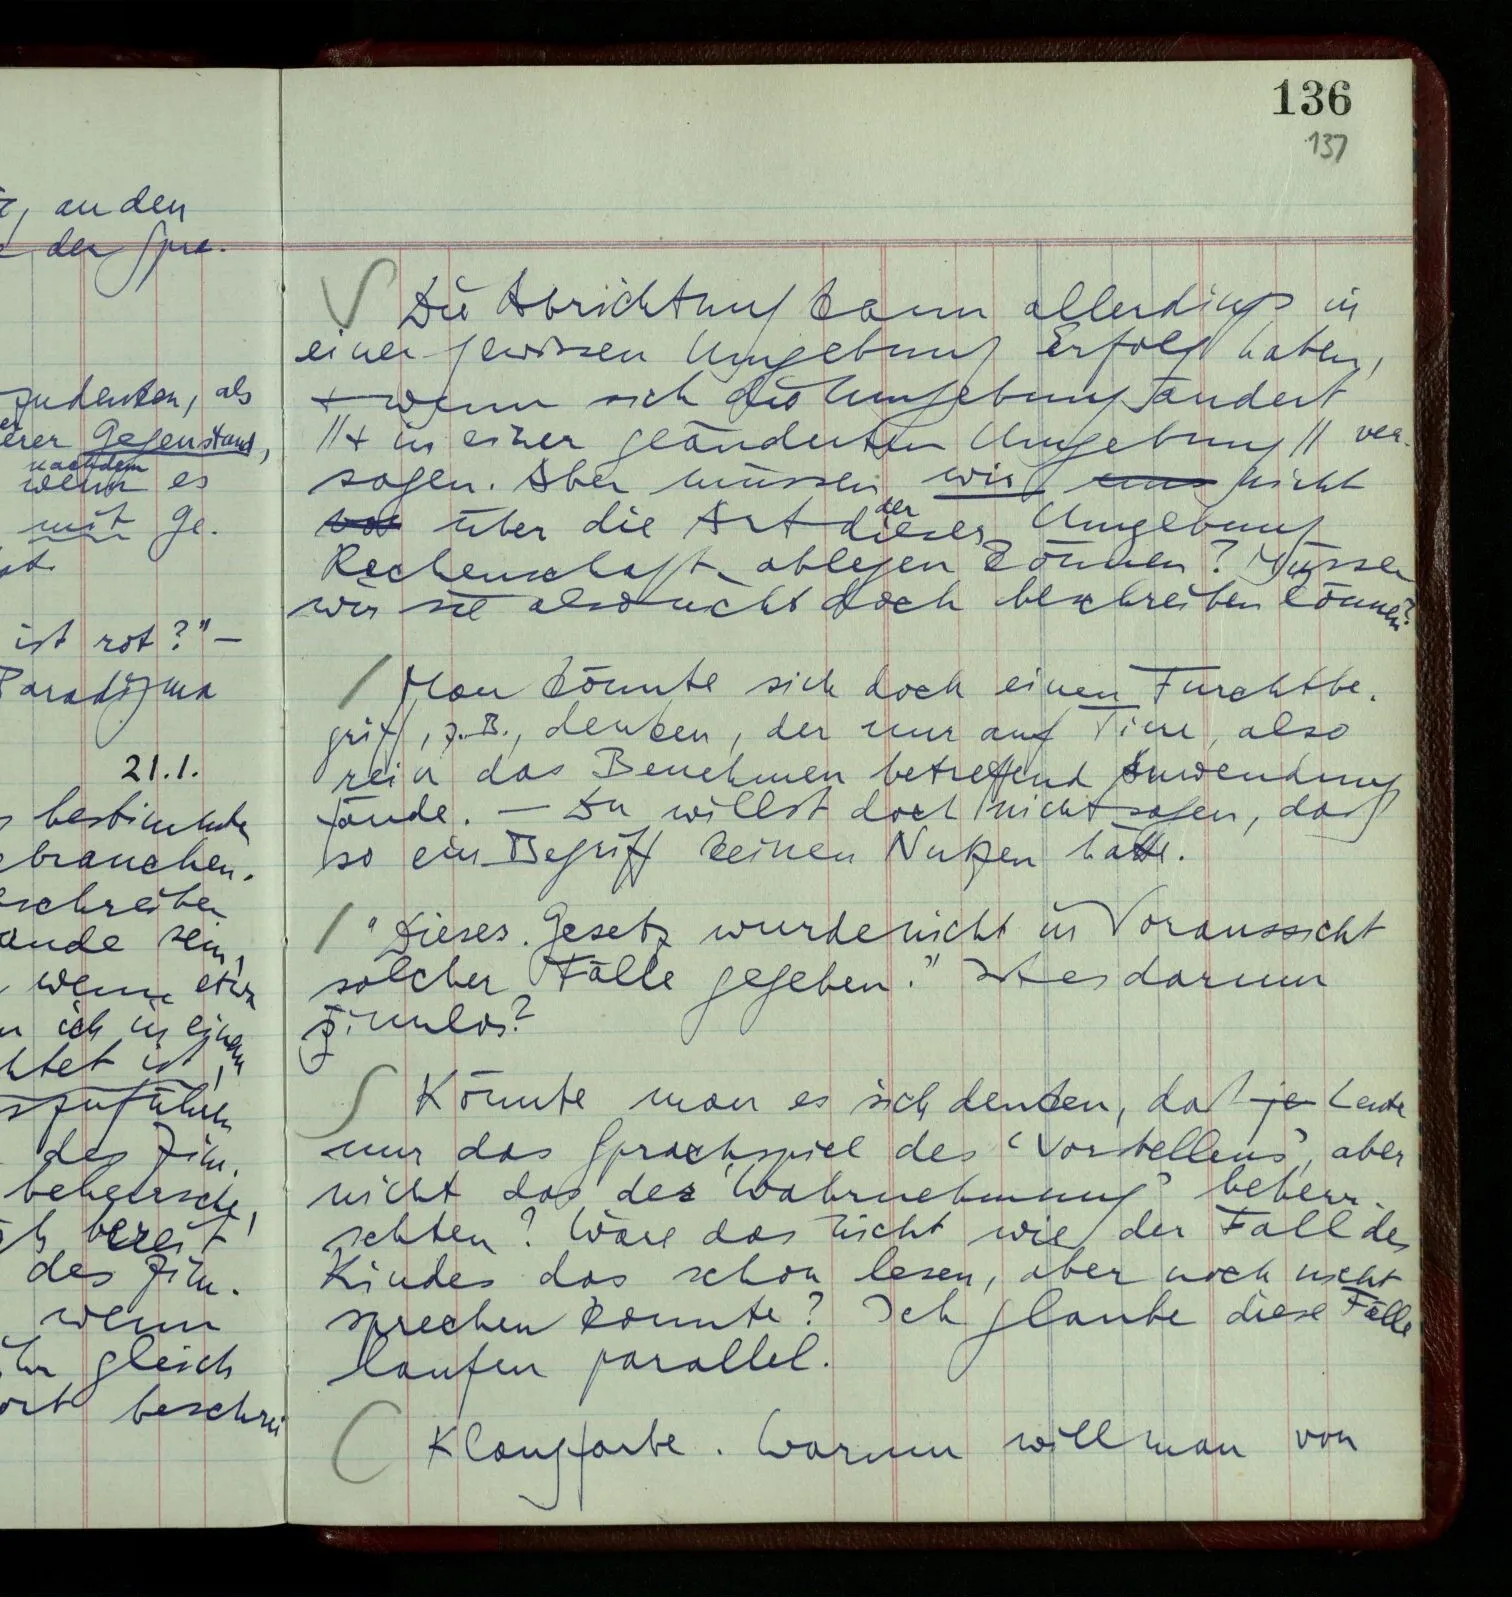 136
137
, an den
der Spra-
zudeuten, als
erer Gegenstand,
nachdem
wenn es
mit Ge-
ist rot?" –
Paradigma
21.1.
bestimmte
ebrauchen.
eschreiben
ande sein,
wenn etwa
ich in einem
htet ist,
szuführen
des Zim-
beherrsche,
bereit
des Zim-
wenn
gleich
ort beschrei
Die Abrichtung kann allerdings in
einer gewissen Umgebung Erfolg haben,
+ wenn sich die Umgebung ändert
//+ in einer geänderten Umgebung// ver-
sagen. Aber müssen wir uns nicht
der
über die Art dieser Umgebung
Rechenschaft ablegen können? Müssen
wir sie also nicht doch beschreiben können?
/ Man könnte sich doch einen Furchtbe-
griff, z.B., denken, der nur auf Tiere, also
rein das Benehmen betreffend Anwendung
fände. – Du willst doch nicht sagen, daß
so ein Begriff keinen Nutzen hätte.
/ "Dieses Gesetz wurde nicht in Voraussicht
solcher Fälle gegeben." Ist es darum
sinnlos?
S Könnte man es sich denken, daß je Leute
nur das Sprachspiel des 'Vorstellens', aber
nicht das der 'Wahrnehmung' beherr-
schten? Wäre das nicht wie der Fall des
Kindes das schon lesen, aber noch nicht
sprechen konnte? Ich glaube diese Fälle
laufen parallel.
C Klangfarbe. Warum will man von